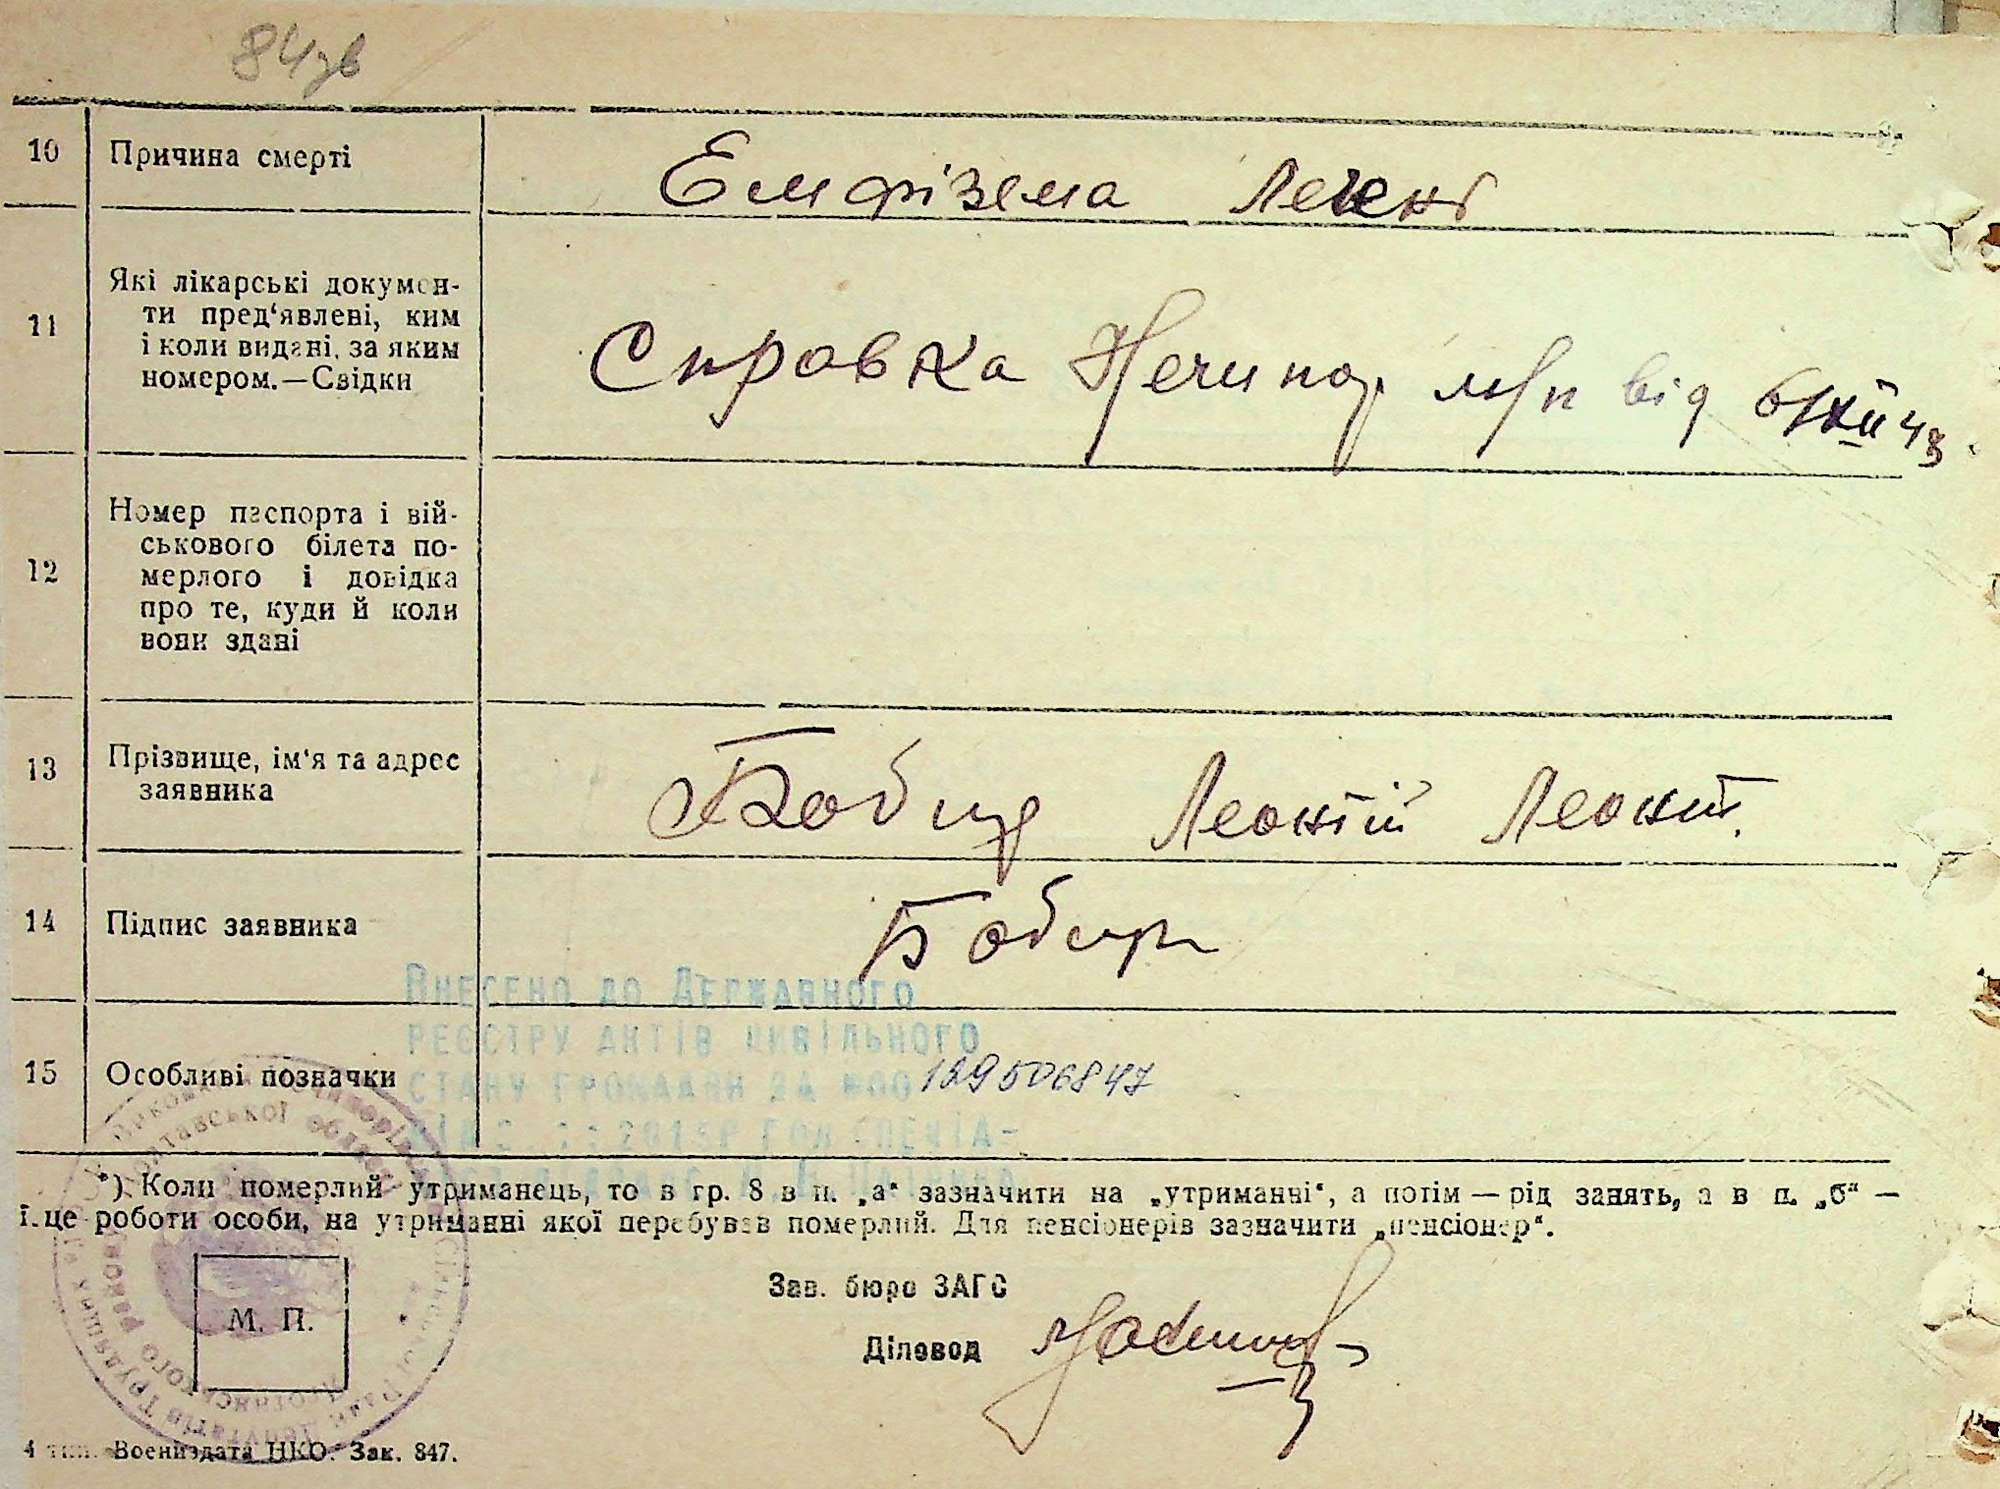 84зв
10 Причина смерті Емфізема легені
11 Які лікарські документи пред‘явлені, ким
і коли видані, за яким
номером.—Свідки
Справка Нечипор. від
12 Номер паспорта і вій-
ськового білета по-
мерлого і довідка
про те, куди й коли
вони здані
13 Прізвище, ім‘я та адрес
заявника
Леонтій Леонт.
14 Підпис заявника Бобир
Внесено до Державного
реєстру актів цивільного
15 Особливі позначки
стану громадян за №00 129506847
*) Коли померлий утриманець, то в гр. 8 в п. „а“ зазначити на „утриманні“, а потім — рід занять, а в п. „б“ —
це роботи особи, на утриманні якої перебував померлий. Для пенсіонерів зазначити „пенсіонер“.
Зав. бюро ЗАГС
М. П.
Діловод
4 тип. Воениздата НКО. Зак. 847.